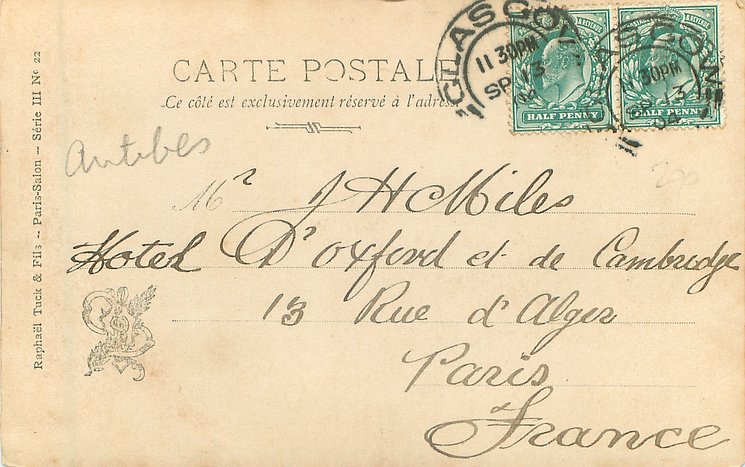 GLASGOW
11 30PM
SP 13
04
HALF PENNY
HALF PENNY
CARTE POSTALE
Ce côté est exclusivement réservé à l'adresse
Antibes
Mr J H Miles
Hotel D'oxford et de Cambridge
13 Rue d'Alger
Paris
France
Raphaël Tuck & Fils -- Paris-Salon -- Série III No 22